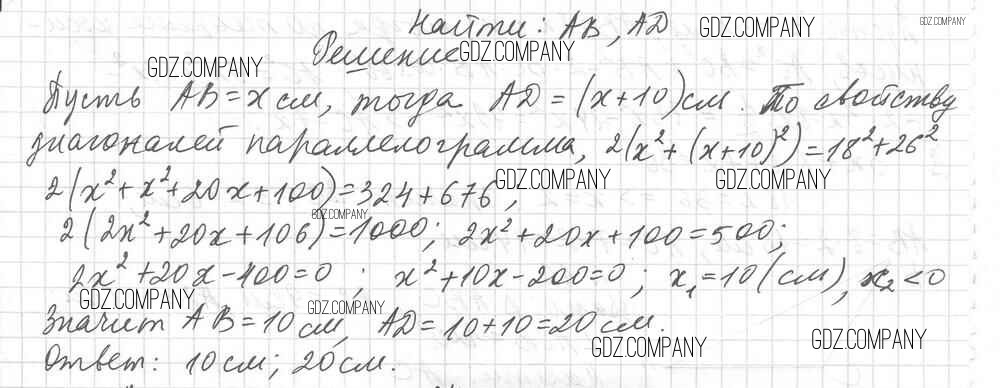 Найти: AB, AD GDZ.COMPANY GDZ.COMPANY
Решение GDZ.COMPANY
GDZ.COMPANY
Пусть AB = x см, тогда AD = (x+10) см. По свойству
диагоналей параллелограмма, 2(x²+(x+10)²)=18²+26²
2(x²+x²+20x+100)=324+676, GDZ.COMPANY GDZ.COMPANY
GDZ.COMPANY
2(2x²+20x+106)=1000; 2x²+20x+100=500;
2x²+20x-400=0; x²+10x-200=0; x₁=10(см), x₂<0
GDZ.COMPANY GDZ.COMPANY
Значит AB=10 см, AD=10+10=20 см.
GDZ.COMPANY GDZ.COMPANY
Ответ: 10 см; 20 см.